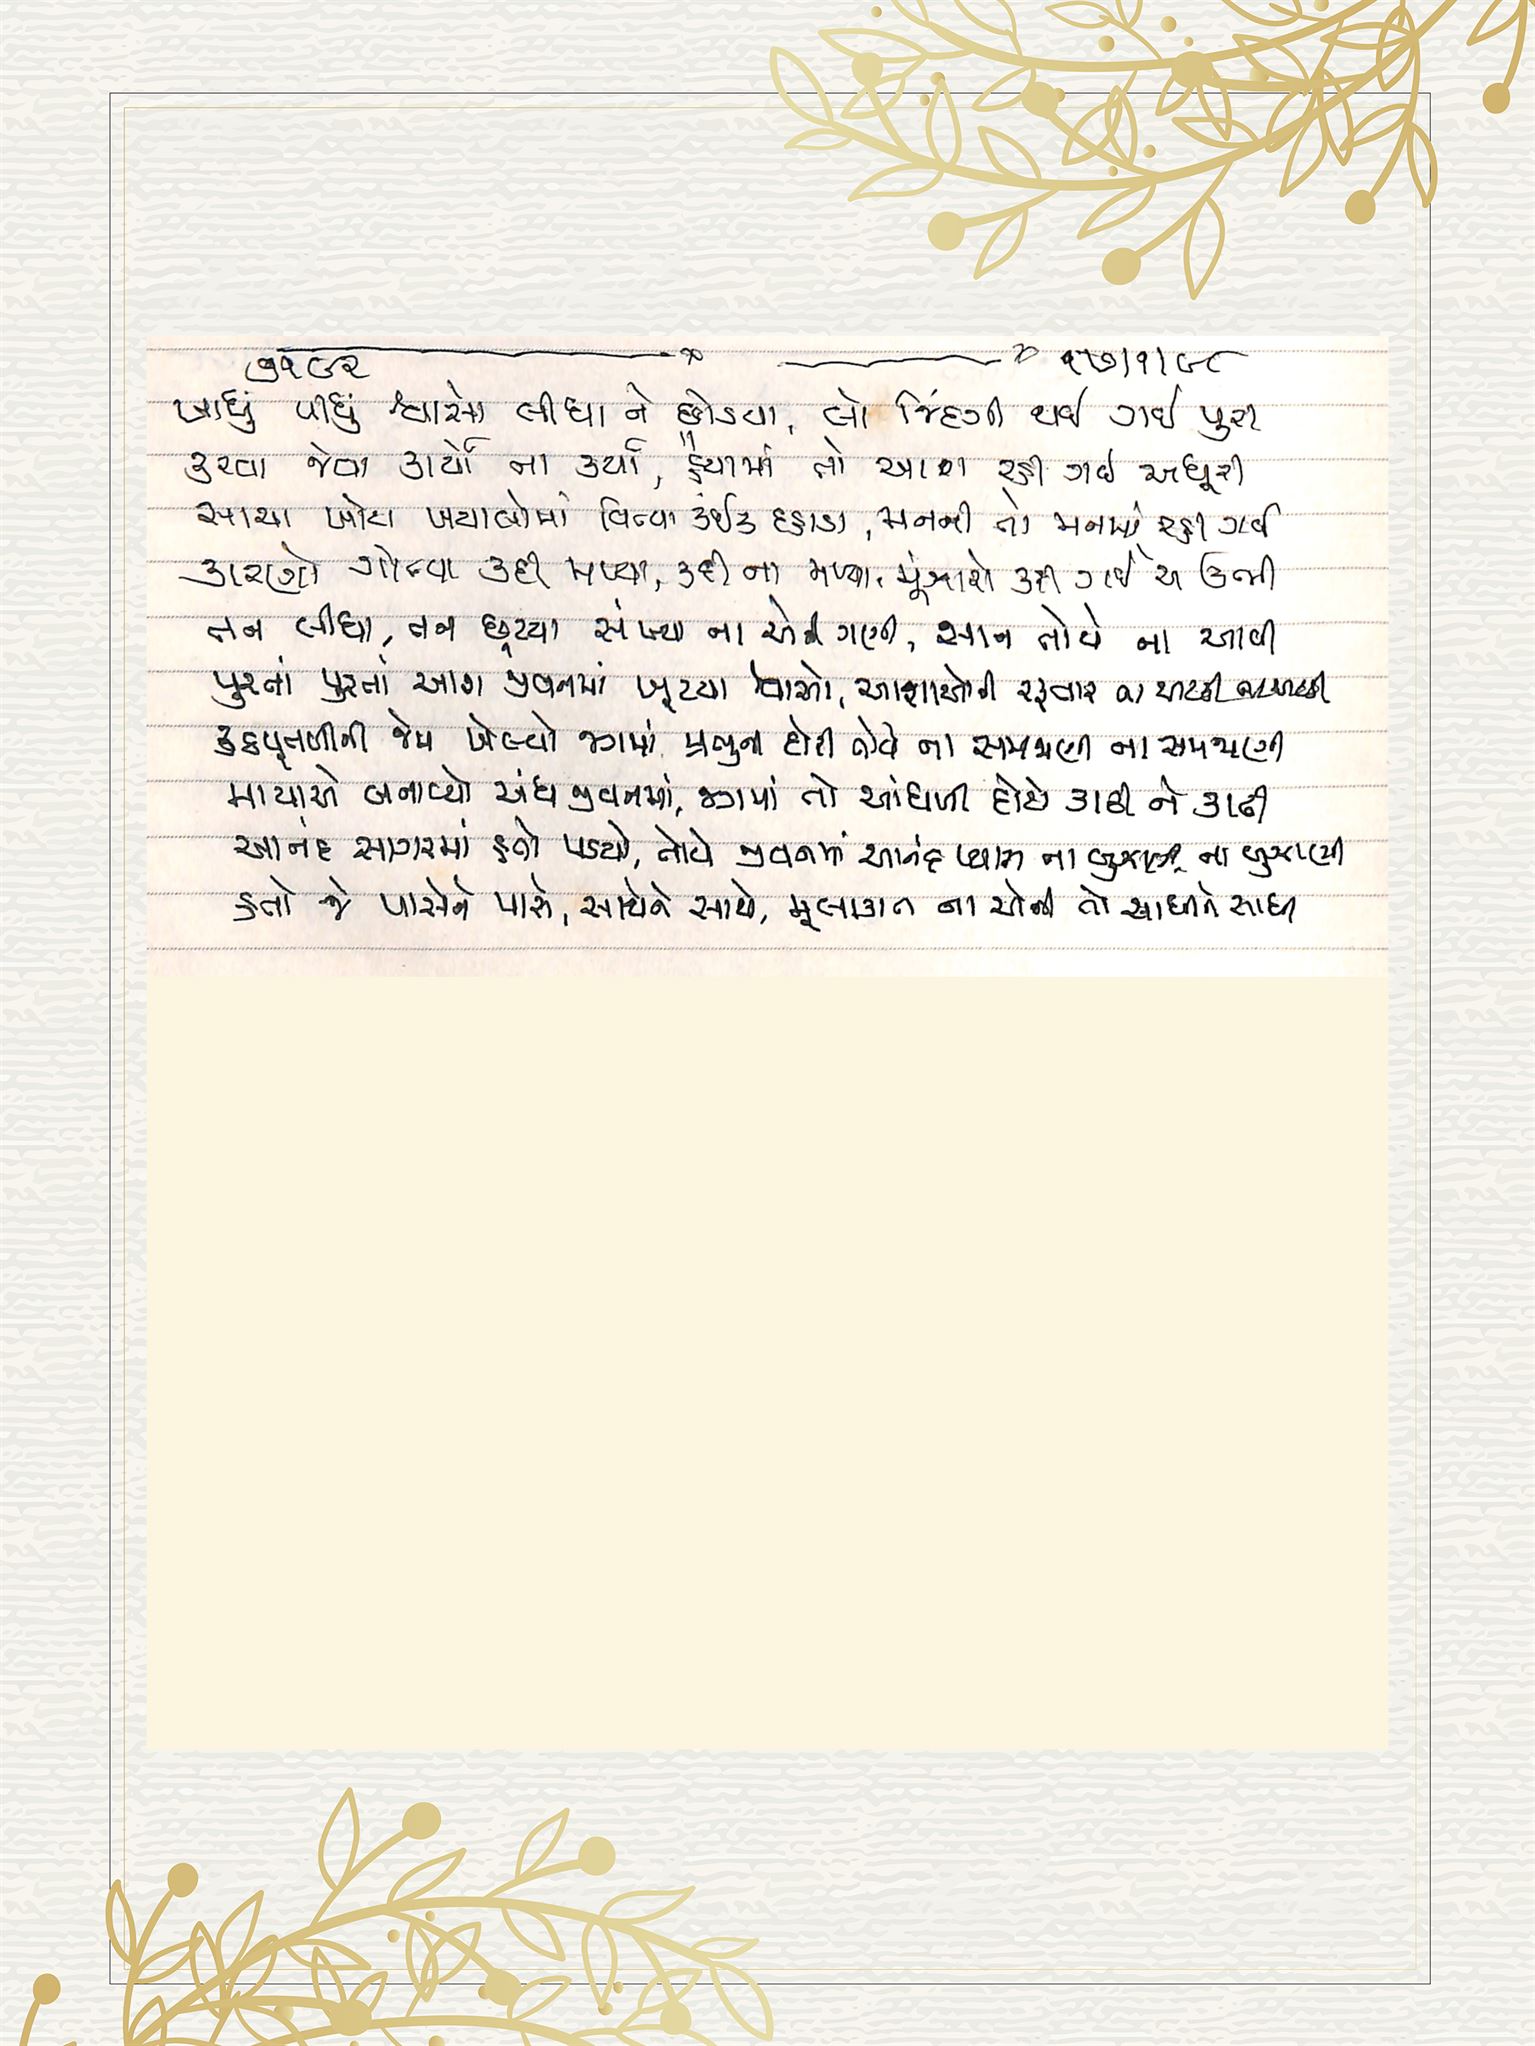 ૭૧૯૨ ૧૭/૧/૯૮
ખાધું પીધું શ્વાસો લીધા ને છોડયા, લો જિંદગી થઈ ગઈ પુરી
કરવા જેવા કાર્યો ના કર્યા, હૈયામાં તો આશ રહી ગઈ અધૂરી
સાચા ખોટા ખયાલોમાં વિત્યા કંઈક દહાડા, મનની તો મનમાં રહી ગઈ
કારણો ગોત્યા કદી મળ્યા, કદી ના મળ્યા. મૂંઝારો કરી ગઈ એ ઉભી
તન લીધા, તન છૂટયા સંખ્યા ના એની ગણી, સાન તોયે ના આવી
પુરતાં પુરતાં આશ જીવનમાં ખૂટયા શ્વાસો, આશાઓની રફતાર ના અટકી ના અટકી
કઠપૂતળીની જેમ ખેલ્યો જગમાં પ્રભુની દોરી તોયે ના સમજાણી ના સમજાણી
માયાએ બનાવ્યો અંધ જીવનમાં, જગમાં તો આંધળી દોટો કાઢી ને કાઢી
આનંદ સાગરમાં હતો પડયો, તોયે જીવનમાં આનંદ પ્યાસ ના બુઝાણી ના બુઝાણી
હતો જે પાસેને પાસે, સાથેને સાથે, મૂલાકાત ના એની તો સાધીને સાધી